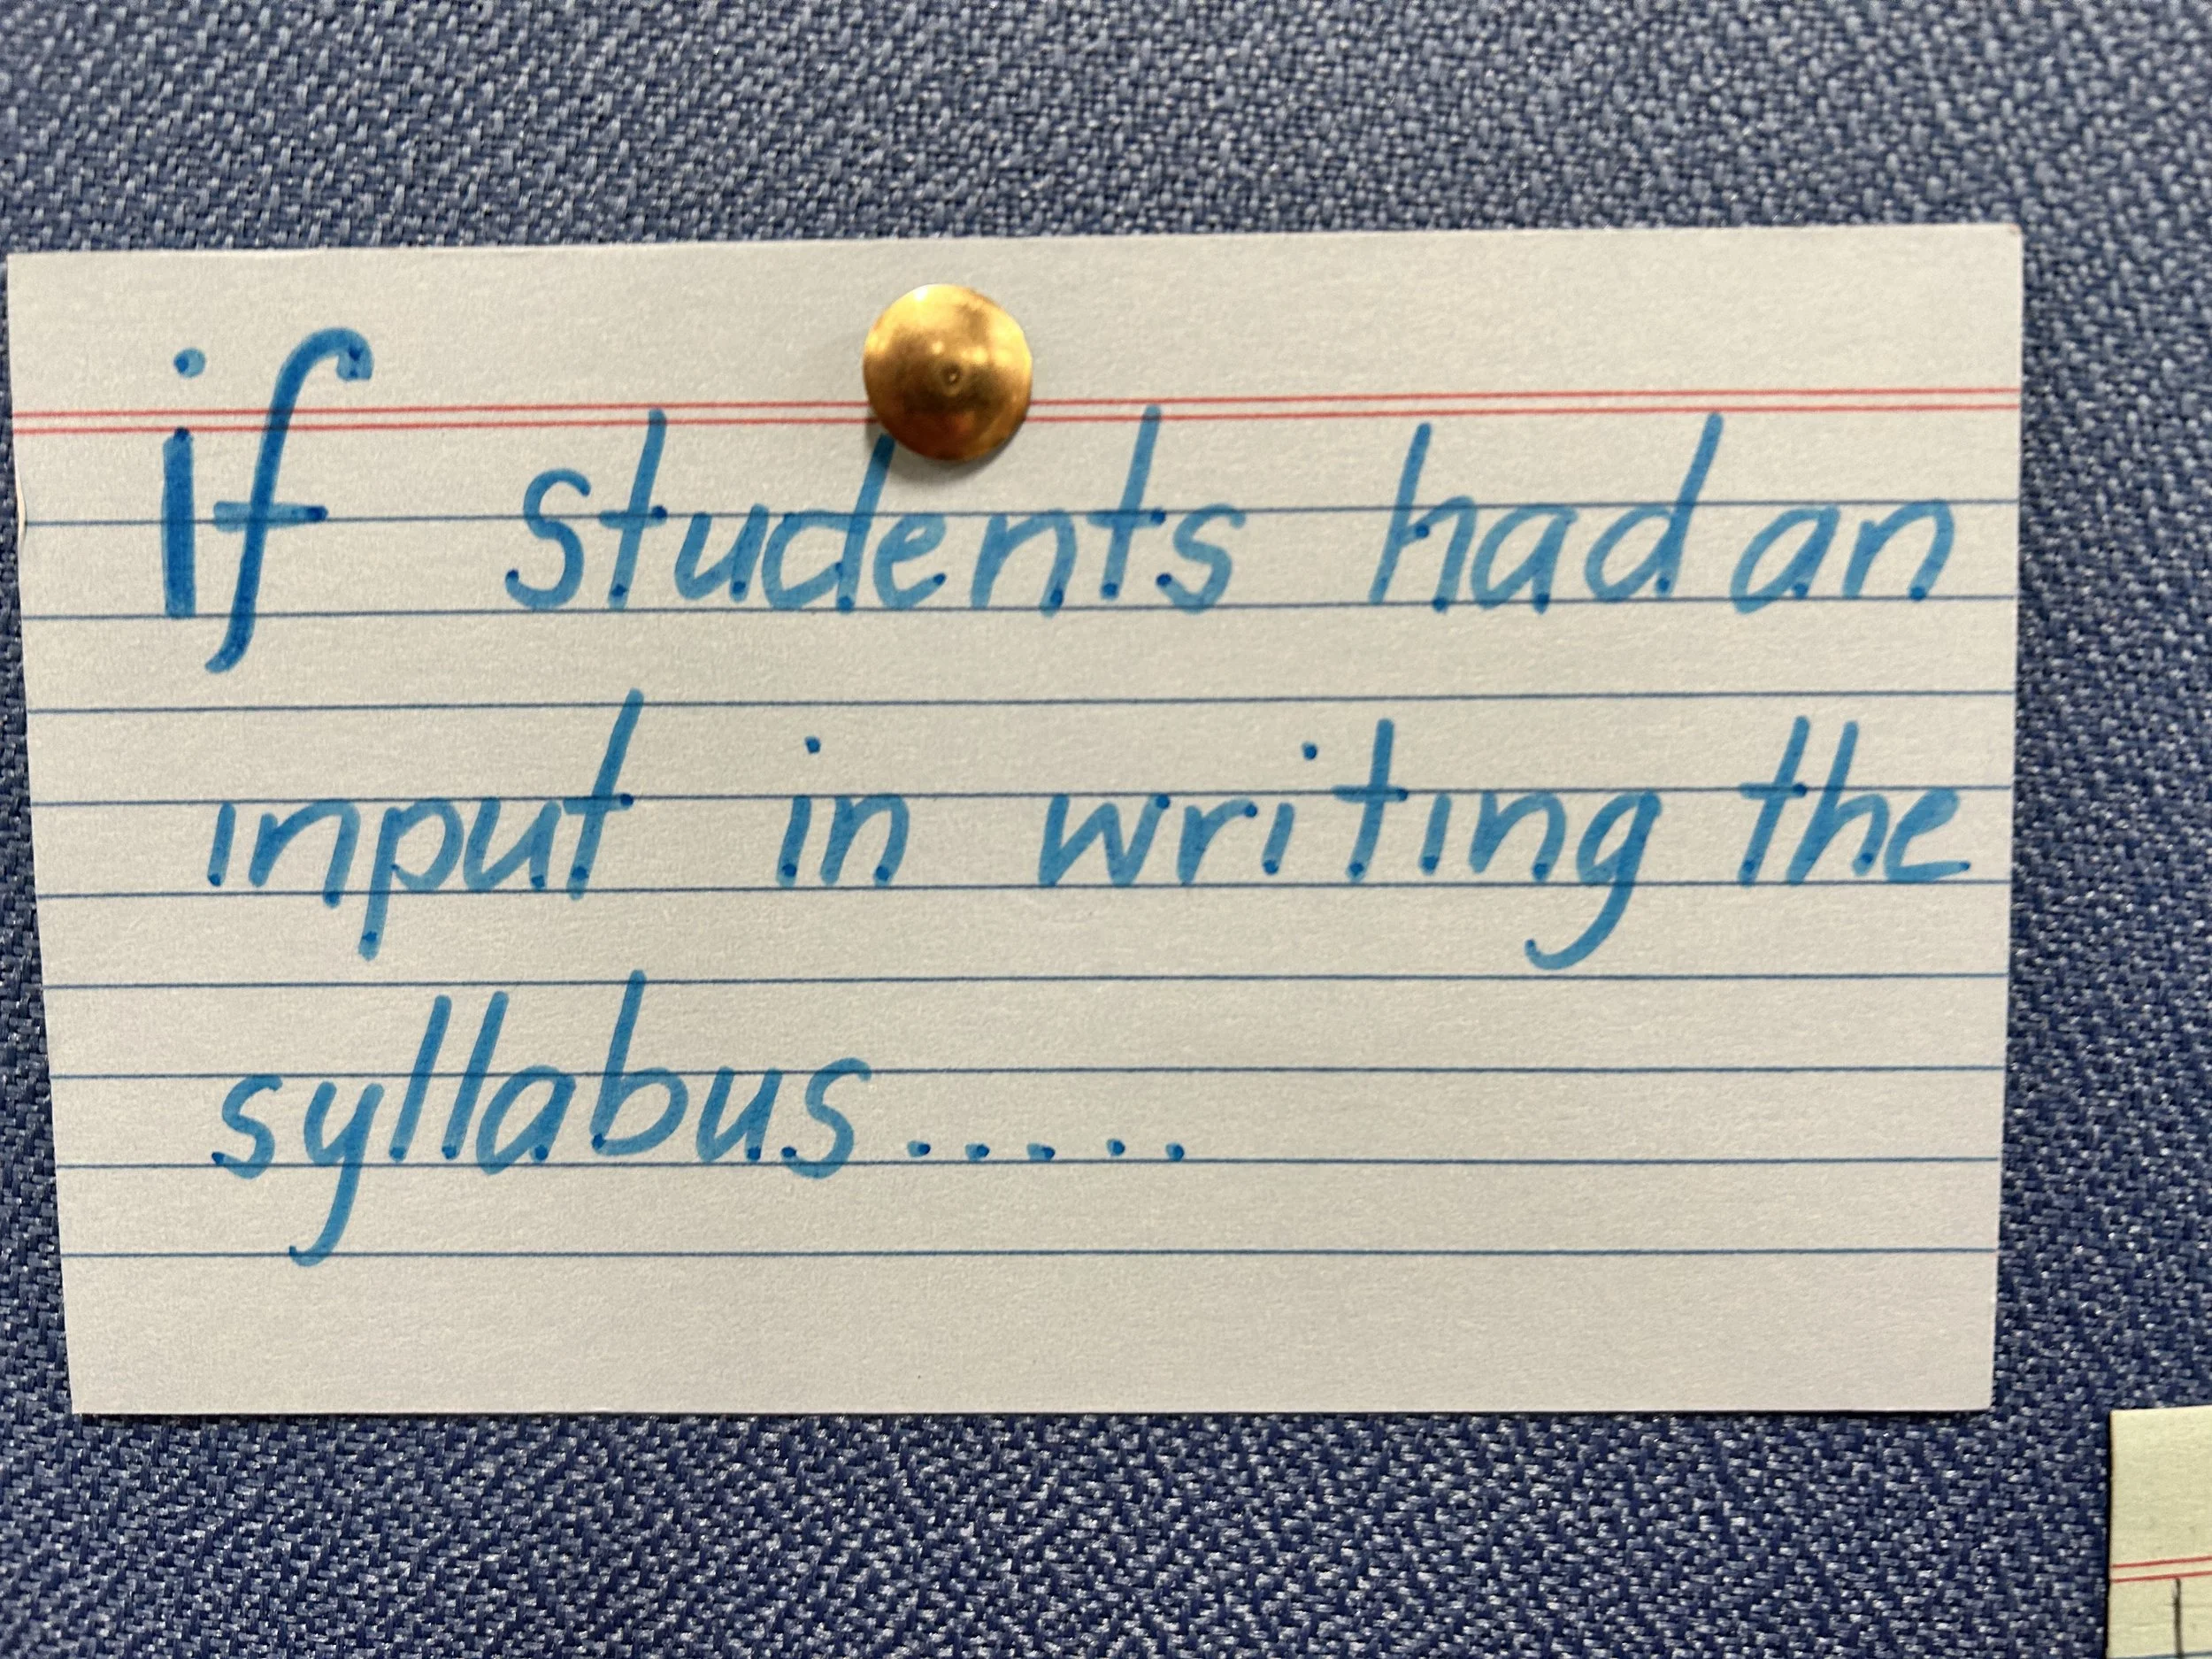 if students had an
input in writing the
syllabus.....